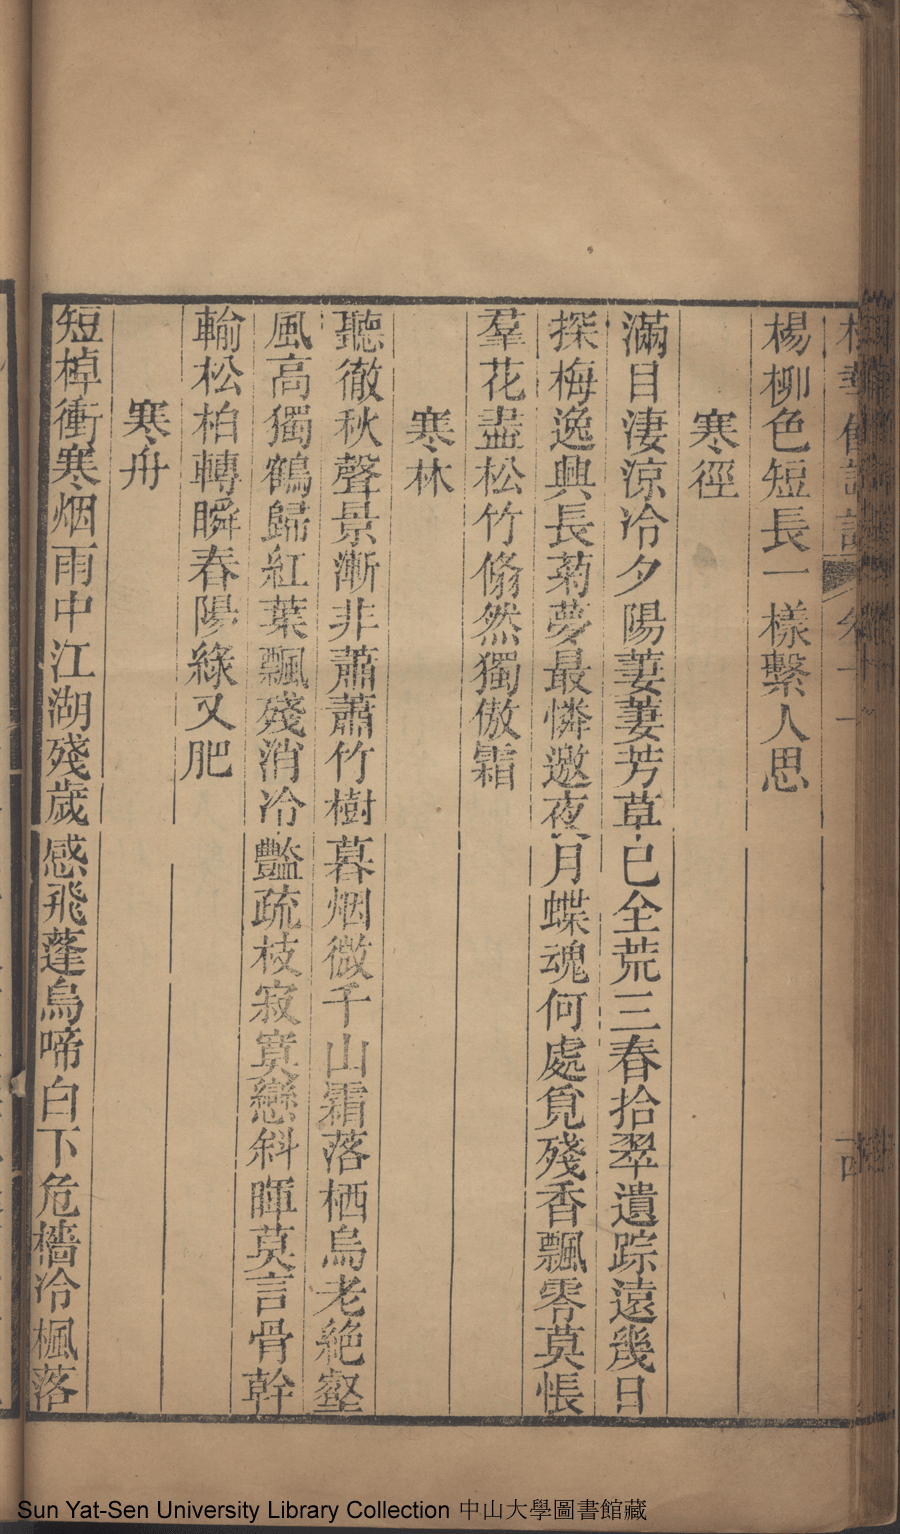 楊柳色短長一樣繫人思
寒徑
滿目淒涼冷夕陽萋萋芳草已全荒三春拾翠遺踪遠幾日
探梅逸興長菊夢最憐邀夜月蝶魂何處覓殘香飄零莫悵
羣花盡松竹翛然獨傲霜
寒林
聽徹秋聲景漸非蕭蕭竹樹暮烟微千山霜落栖烏老絶壑
風高獨鶴歸紅葉飄殘消冷豔疏枝寂寞戀斜暉莫言骨幹
輸松柏轉瞬春陽綠又肥
寒舟
短棹衝寒烟雨中江湖殘歲感飛蓬烏啼白下危檣冷楓落
Sun Yat-Sen University Library Collection 中山大學圖書館藏